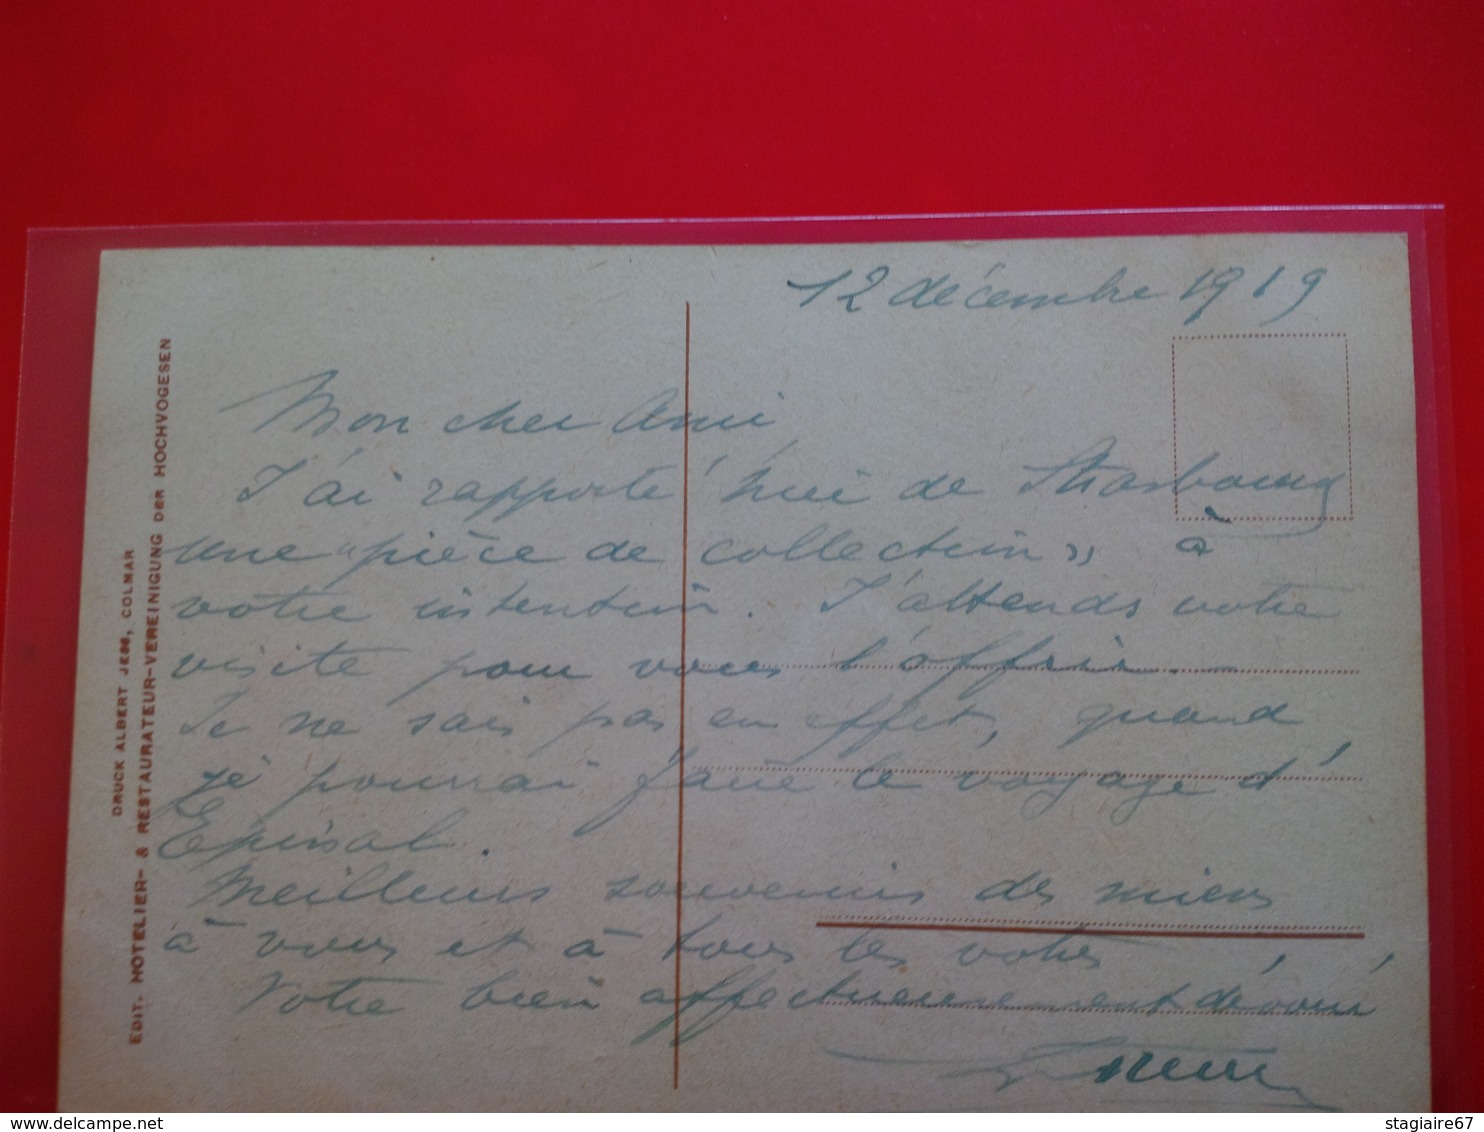 12 décembre 1919
Mon cher Ami,
J'ai rapporté hier de Strasbourg
une "pièce de collection" à
votre intention. J'attends votre
visite pour vous l'offrir.
Je ne sais pas en effet, quand
je pourrai faire le voyage d'
Epinal.
Meilleurs souvenirs des miens
à vous et à tous les vôtres
Votre bien affectueusement dévoué
DRUCK ALBERT JESS, COLMAR
EDIT. HOTELIER- & RESTAURATEUR-VEREINIGUNG DER HOCHVOGESEN
stagiaire67